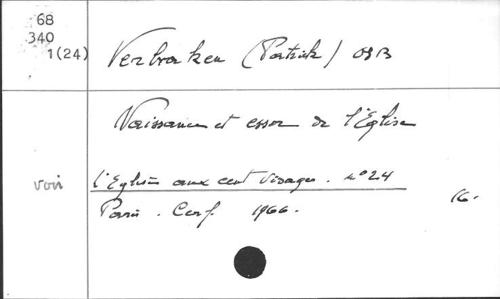 68
340
1(24)
Verbraken (Patrick) OSB
Naissance et essor de l'Eglise
voir
l'Eglise aux cent visages. n° 24
Paris. Cerf. 1966.
16.